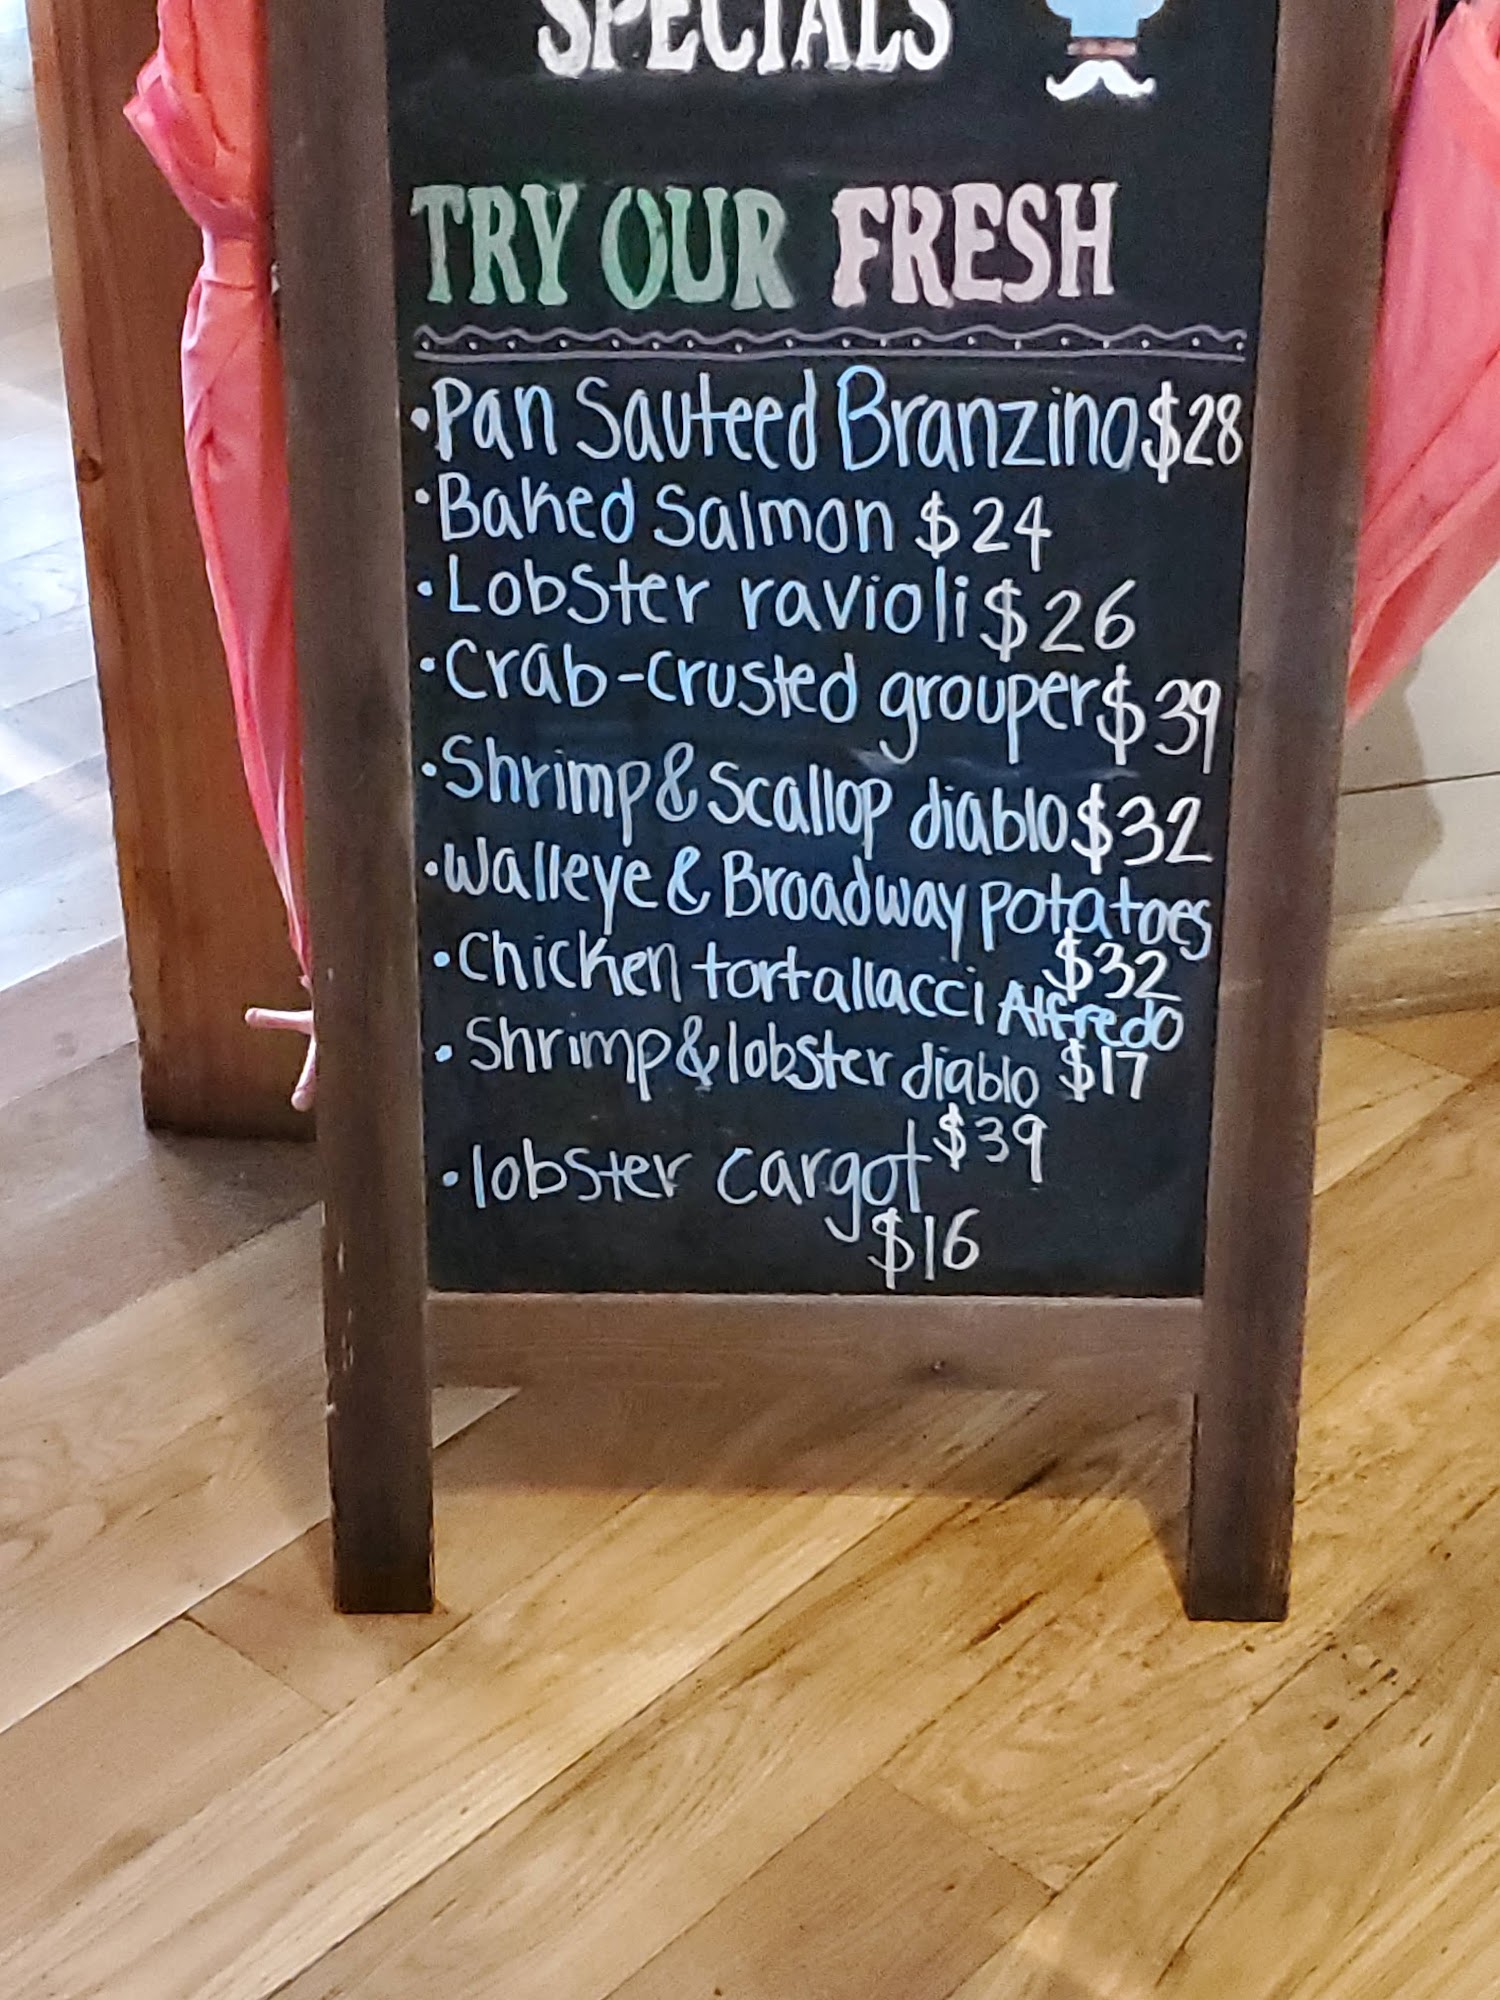 SPECIALS
TRY OUR FRESH
•Pan Sauteed Branzino $28
•Baked Salmon $24
•Lobster ravioli $26
•Crab-crusted grouper $39
•Shrimp & Scallop diablo $32
•Walleye & Broadway potatoes
$32
•Chicken tortallacci Alfredo
$17
•Shrimp & lobster diablo
$39
•lobster cargot
$16